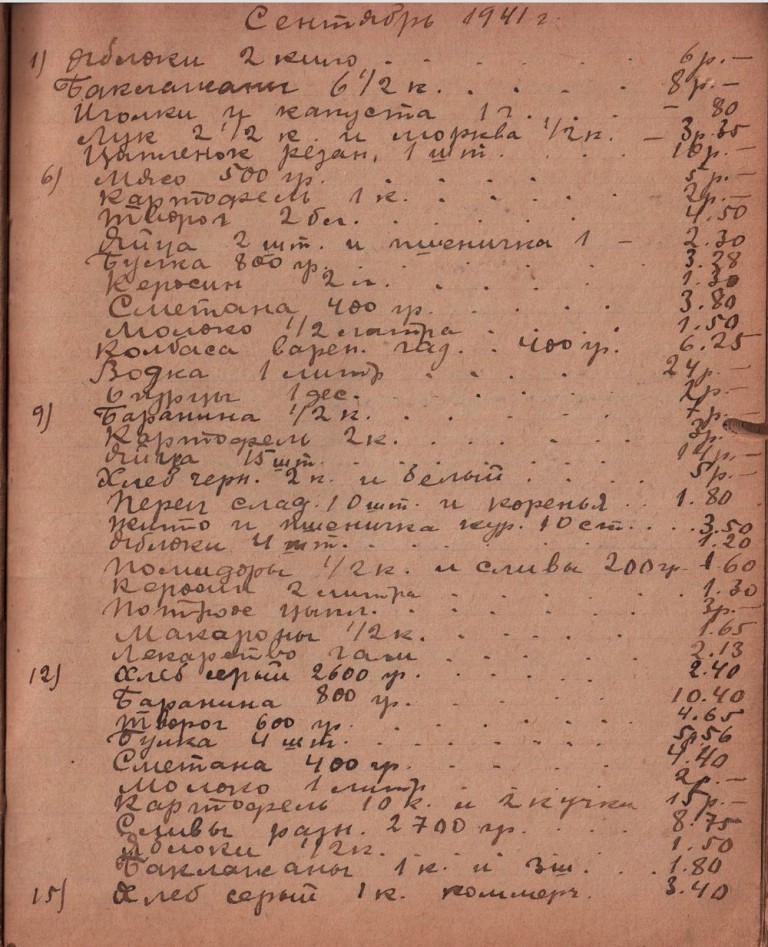 Сентябрь 1941 г.
1) Яблоки 2 кило . . . . . 6 р. —
Баклажаны 6 1/2 к. . . . . 8 р. —
Иголки и капуста 1 г. . . — 80
Лук 2 1/2 к. и морква 1/2 к. — 3 р. 35
Цыпленок резан. 1 шт. . . . 16 р. —
6) Мясо 500 гр. . . . . 5 р. —
Картофель 1 к. . . . . 2 р. —
Творог 2 бл. . . . . 4.50
Яйца 2 шт. и пшеничка 1 — 2.30
Булка 800 гр. . . . . 3.28
Керосин 2 л. . . . . 1.30
Сметана 400 гр. . . . . 3.80
Молоко 1/2 литра . . . . 1.50
Колбаса варен. . 400 гр. 6.25
Водка 1 литр . . . . 24 р. —
Огурцы 1 дес. . . . . 2 р. —
9) Баранина 1/2 к. . . . . 7 р. —
Картофель 2 к. . . . . 3 р. —
Яйца 15 шт. . . . . р. —
Хлеб черн. 2 к. и белый . . . 5 р. —
Перец слад. 10 шт. и коренья . . 1.80
Жито и пшеничка кур. 10 ст. . . . 3.50
Яблоки 4 шт. . . . . 1.20
Помидоры 1/2 к. и сливы 200 гр. 1.60
Керосин 2 литра . . . . 1.30
Потрох цыпл. . . . . 3 р. —
Макароны 1/2 к. . . . . 1.65
Лекарство гали . . . . 2.13
12) Хлеб серый 2600 гр. . . . 2.40
Баранина 800 гр. . . . . 10.40
Творог 600 гр. . . . . 4.65
Булка 4 шт. . . . . 5 р. 56
Сметана 400 гр. . . . . 4.40
Молоко 1 литр . . . . 2 р. —
Картофель 10 к. и 2 кучки 15 р. —
Сливы разн. 2700 гр. . . . 8.75
Яблоки 1/2 к. . . . . 1.50
Баклажаны 1 к. и 3 ш. . . 1.80
15) Хлеб серый 1 к. коммерч. 3.40